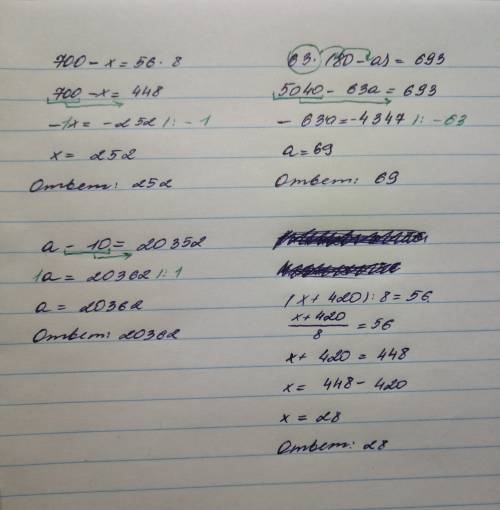 700 - x = 56 · 8
700 - x = 448
-1x = -252 |: -1
x = 252
Ответ: 252
63 · (80 - a) = 693
5040 - 63a = 693
- 63a = -4347 |: -63
a = 69
Ответ: 69
a - 10 = 20352
1a = 20362 |: 1
a = 20362
Ответ: 20362
(x + 420) : 8 = 56
x + 420
8
= 56
x + 420 = 448
x = 448 - 420
x = 28
Ответ: 28